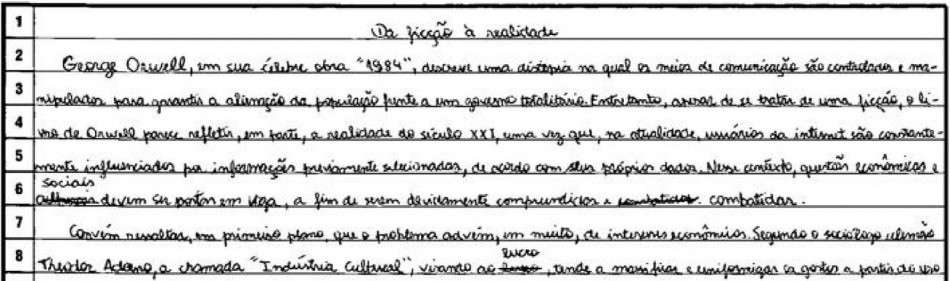 1 Da ficção à realidade
2 George Orwell, em sua célebre obra "1984", descreve uma distopia na qual os meios de comunicação são controlados e ma-
3 nipulados para garantir a alienação da população frente a um governo totalitário. Entretanto, apesar de se tratar de uma ficção, o li-
4 vro de Orwell parece refletir, em parte, a realidade do século XXI, uma vez que, na atualidade, usuários da internet são constante-
5 mente influenciados por informações previamente selecionadas, de acordo com seus próprios dados. Nesse contexto, questões econômicas e
sociais
6 devem ser postas em voga, a fim de serem devidamente compreendidas e combatidas.
7 Convém ressaltar, em primeiro plano, que o problema advém, em muito, de interesses econômicos. Segundo o sociólogo alemão
lucro
8 Theodor Adorno, a chamada "Indústria Cultural", visando ao, tende a massificar e uniformizar os gostos a partir do uso